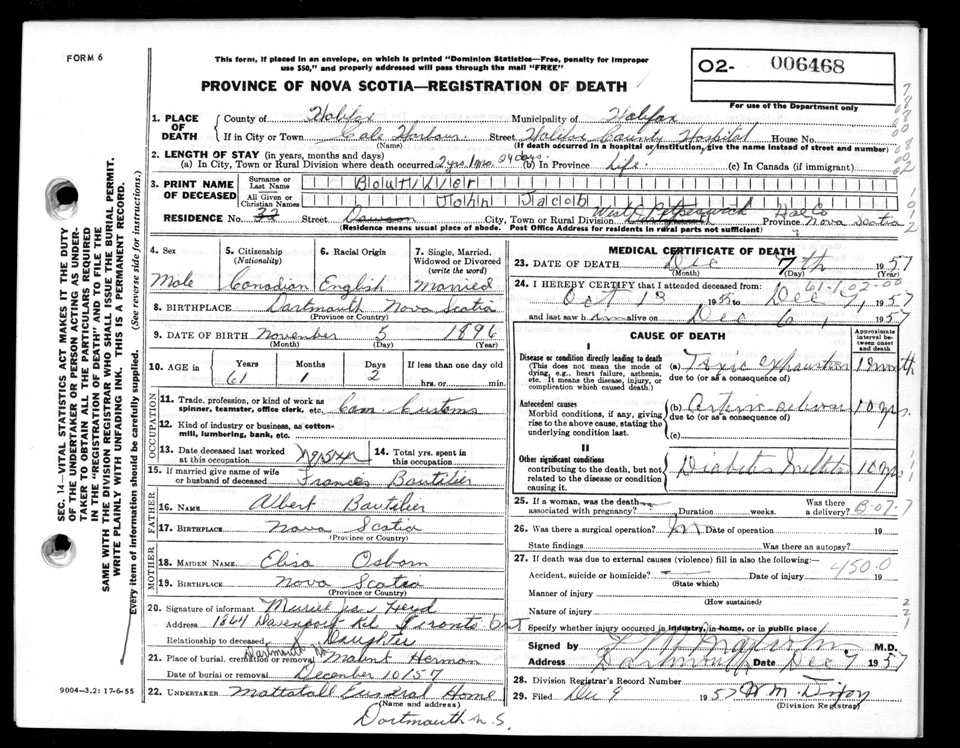 FORM 6
This form, if placed in an envelope, on which is printed "Dominion Statistics—Free, penalty for improper
use $50," and properly addressed will pass through the mail "FREE"
PROVINCE OF NOVA SCOTIA—REGISTRATION OF DEATH
02- 006468
For use of the Department only
1. PLACE OF DEATH
County of Halifax Municipality of Halifax
If in City or Town Cole Harbour Street Halifax County Hospital House No.
(Name) (If death occurred in a hospital or institution, give the name instead of street and number)
2. LENGTH OF STAY (in years, months and days)
(a) In City, Town or Rural Division where death occurred 2 yrs. 1 mo. 24 days. (b) In Province Life. (c) In Canada (if immigrant)
3. PRINT NAME OF DECEASED
Surname or Last Name Boutilier
All Given or Christian Names John Jacob
RESIDENCE No. 32 Street Dawson City, Town or Rural Division West Petpeswick Hal Co Province Nova Scotia
(Residence means usual place of abode. Post Office Address for residents in rural parts not sufficient)
4. Sex Male
5. Citizenship (Nationality) Canadian
6. Racial Origin English
7. Single, Married, Widowed or Divorced (write the word) Married
8. BIRTHPLACE Dartmouth Nova Scotia
(Province or Country)
9. DATE OF BIRTH November 5 1896
(Month) (Day) (Year)
10. AGE in Years Months Days If less than one day old
61 1 2 hrs. or min.
OCCUPATION
11. Trade, profession, or kind of work as spinner, teamster, office clerk, etc. Can. Customs
12. Kind of industry or business, as cotton-mill, lumbering, bank, etc.
13. Date deceased last worked at this occupation
14. Total yrs. spent in this occupation
15. If married give name of wife or husband of deceased Frances Boutilier
FATHER
16. NAME Albert Boutilier
17. BIRTHPLACE Nova Scotia
(Province or Country)
MOTHER
18. MAIDEN NAME Elisa Osborn
19. BIRTHPLACE Nova Scotia
(Province or Country)
20. Signature of informant Muriel
Address 1364 Davenport Rd Toronto Ont
Relationship to deceased Daughter
21. Place of burial, cremation or removal Dartmouth Mount Hermon
Date of burial or removal December 10/57
22. UNDERTAKER Mattatall Funeral Home
(Name and address)
Dartmouth N.S.
9004-3.2: 17-6-55
MEDICAL CERTIFICATE OF DEATH
23. DATE OF DEATH Dec 7th 1957
(Month) (Day) (Year)
61-1-02-00
24. I HEREBY CERTIFY that I attended deceased from:
Oct 13 1955 to Dec 7, 1957
and last saw him alive on Dec 6, 1957
CAUSE OF DEATH
Approximate interval between onset and death
I
Disease or condition directly leading to death
(This does not mean the mode of dying, e.g., heart failure, asthenia, etc. It means the disease, injury, or complication which caused death.)
(a) Toxic exhaustion 1 month
due to (or as a consequence of)
Antecedent causes
Morbid conditions, if any, giving rise to the above cause, stating the underlying condition last.
(b) Arterio-sclerosis 10 yrs.
due to (or as a consequence of)
(c)
II
Other significant conditions
contributing to the death, but not related to the disease or condition causing it.
Diabetes Mellitus 10 yrs
25. If a woman, was the death associated with pregnancy? Duration weeks. Was there a delivery?
26. Was there a surgical operation? Date of operation 19
State findings Was there an autopsy?
27. If death was due to external causes (violence) fill in also the following:—
450.0
Accident, suicide or homicide? Date of injury 19
(State which)
Manner of injury
(How sustained)
Nature of injury
Specify whether injury occurred in industry, in home, or in public place
Signed by M.D.
Address Dartmouth Date Dec 7 1957
28. Division Registrar's Record Number
29. Filed Dec 9 1957 W M.
(Division Registrar)
SEC. 14—VITAL STATISTICS ACT MAKES IT THE DUTY
OF THE UNDERTAKER OR PERSON ACTING AS UNDER-
TAKER TO OBTAIN ALL THE PARTICULARS REQUIRED
IN THE "REGISTRATION OF DEATH" AND TO FILE THE
SAME WITH THE DIVISION REGISTRAR WHO SHALL ISSUE THE BURIAL PERMIT.
WRITE PLAINLY WITH UNFADING INK. THIS IS A PERMANENT RECORD.
Every item of information should be carefully supplied. (See reverse side for instructions.)